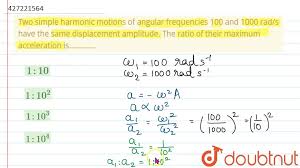 427221564
Two simple harmonic motions of angular frequencies 100 and 1000 rad/s
have the same displacement amplitude. The ratio of their maximum
acceleration is............
1 : 10
1 : 10²
1 : 10³
1 : 10⁴
ω₁ = 100 rad s⁻¹
ω₂ = 1000 rad s⁻¹
a = - ω² A
a ∝ ω²
a₁/a₂ = ω₁²/ω₂² = (100/1000)² = (1/10)²
a₁/a₂ = 1/10²
a₁ : a₂ = 1:10²
doubtnut